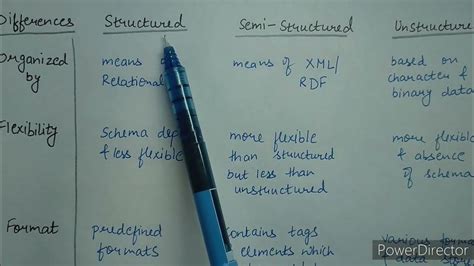 Differences Structured Semi-Structured Unstructured
Organized by
means
Relational
means of XML/
RDF
based on
character &
binary data
Flexibility
Schema dep
& less flexible
more flexible
than structured
but less than
unstructured
more flexible
& absence
of schema
Format
predefined
formats
contains tags
elements which
PowerDirector